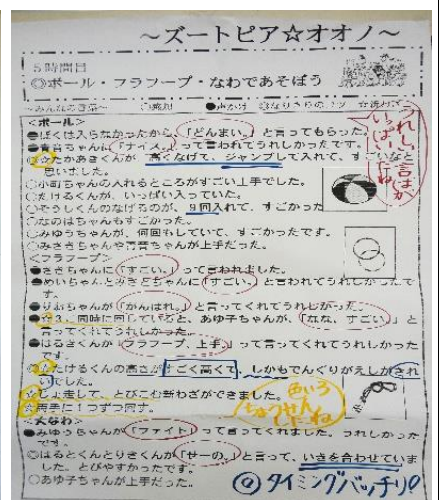 ～ズートピア☆オオノ～
5時間目
◎ボール・フラフープ・なわであそぼう
～みんなの言葉～ ○感想 ●声かけ
<ボール>
●ぼくは入らなかったから、「どんまい。」と言ってもらった。
「ナイス。」って言われてうれしかったです。
たかあきくんが、高くなげて、ジャンプして入れて、すごいなと
思いました。
○小町ちゃんの入れるところがすごい上手でした。
○たけるくんが、いっぱい入っていた。
くんのなげるのが、9回入れて、すごかった
○なのはちゃんもすごかった。
○みゆうちゃんが、何回もしていて、すごかったです。
○みさきちゃんや青音ちゃんが上手だった。
<フラフープ>
●さきちゃんに「すごい。」って言われました。
●めいちゃんとみさとちゃんに「すごい。」と言われてうれしかったで
す。
●りおちゃんが「がんばれ。」と言ってくれてうれしかった。
同時に回していると、あゆ子ちゃんが、「なな、すごい。」と
言ってくれてうれしかった。
●はるきくんが「フラフープ、上手。」って言ってくれてうれしかった
です。
たけるくんの高さがすごく高くて、しかもでんぐりがえしがきれ
いでした。
☆じょ走して、とびこむ新わざができました。
☆両手に1つずつ回す。
<大なわ>
●みゆうちゃんが「ファイト」って言ってくれました。うれしかった
です。
◎はるとくんとりさくんが「せーの。」と言って、いきを合わせていま
した。とびやすかったです。
○あゆ子ちゃんが上手だった。
うれしい言葉が
いっぱい
だね
色いろ
ちょうせん
したね
◎タイミングバッチリ!